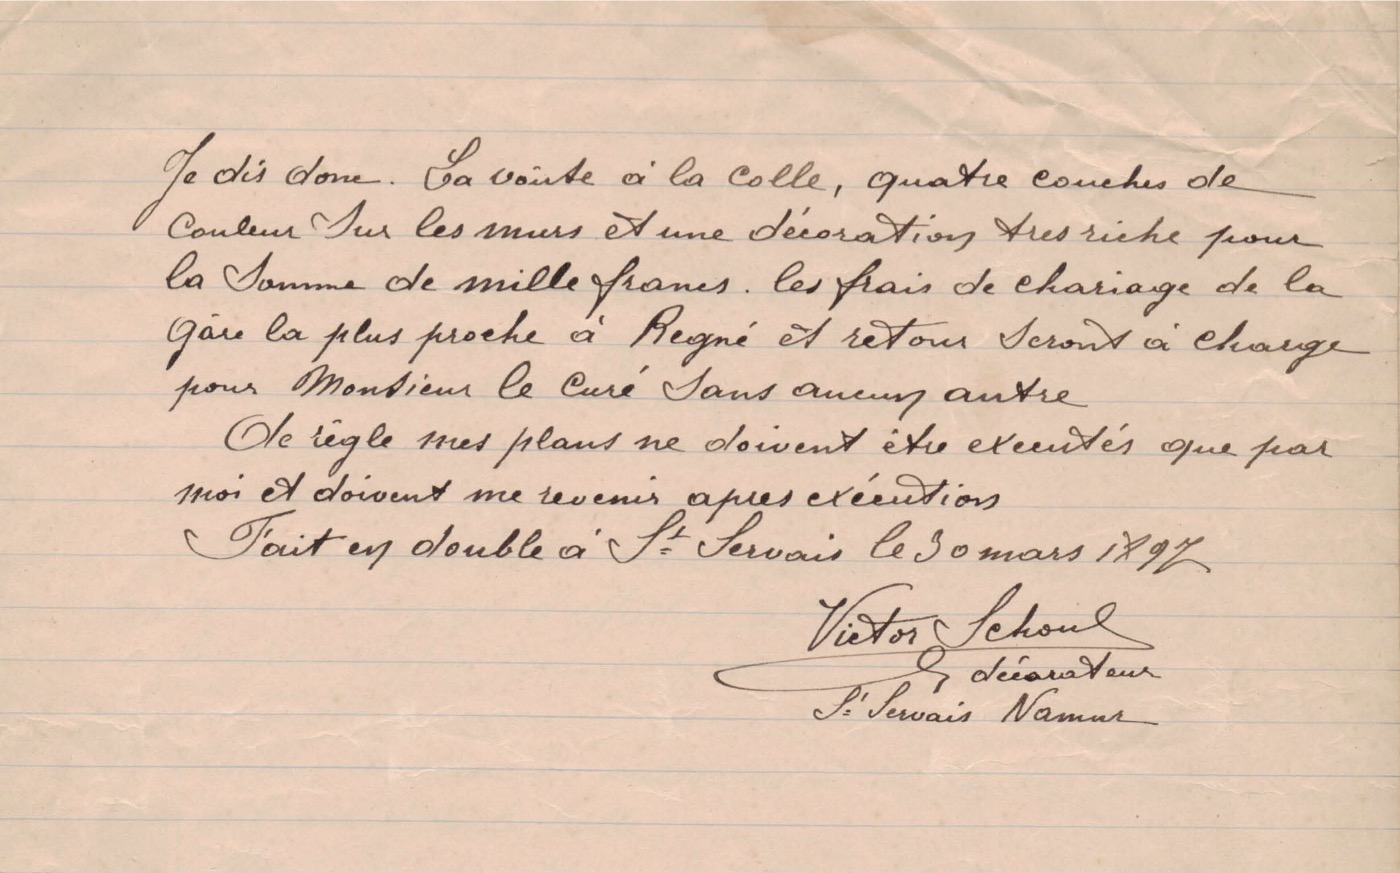 Je dis donc. La voûte à la colle, quatre couches de
couleur sur les murs et une décoration tres riche pour
la somme de mille francs. les frais de chariage de la
gâre la plus proche à Regné et retour seront à charge
pour Monsieur le Curé sans aucun autre
De règle mes plans ne doivent être executés que par
moi et doivent me revenir apres exécution
Fait en double à St Servais le 30 mars 1897
Victor Schoul
décorateur
St Servais Namur